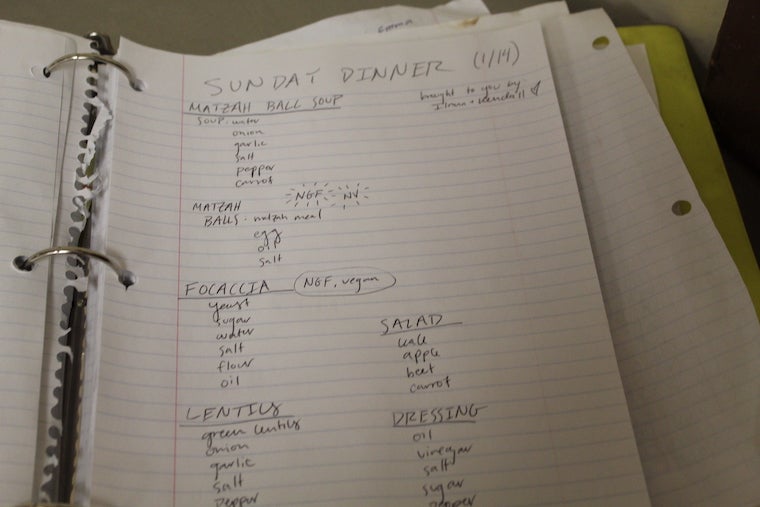 emma
SUNDAY DINNER (1/14)
brought to you by
Ilana + Kendall ♡
MATZAH BALL SOUP
SOUP - water
onion
garlic
salt
pepper
carrot
NGF NV
MATZAH
BALLS - matzah meal
egg
oil
salt
FOCACCIA NGF, vegan
yeast
sugar
water
salt
flour
oil
SALAD
kale
apple
beet
carrot
LENTILS
green lentils
onion
garlic
salt
pepper
DRESSING
oil
vinegar
salt
sugar
pepper